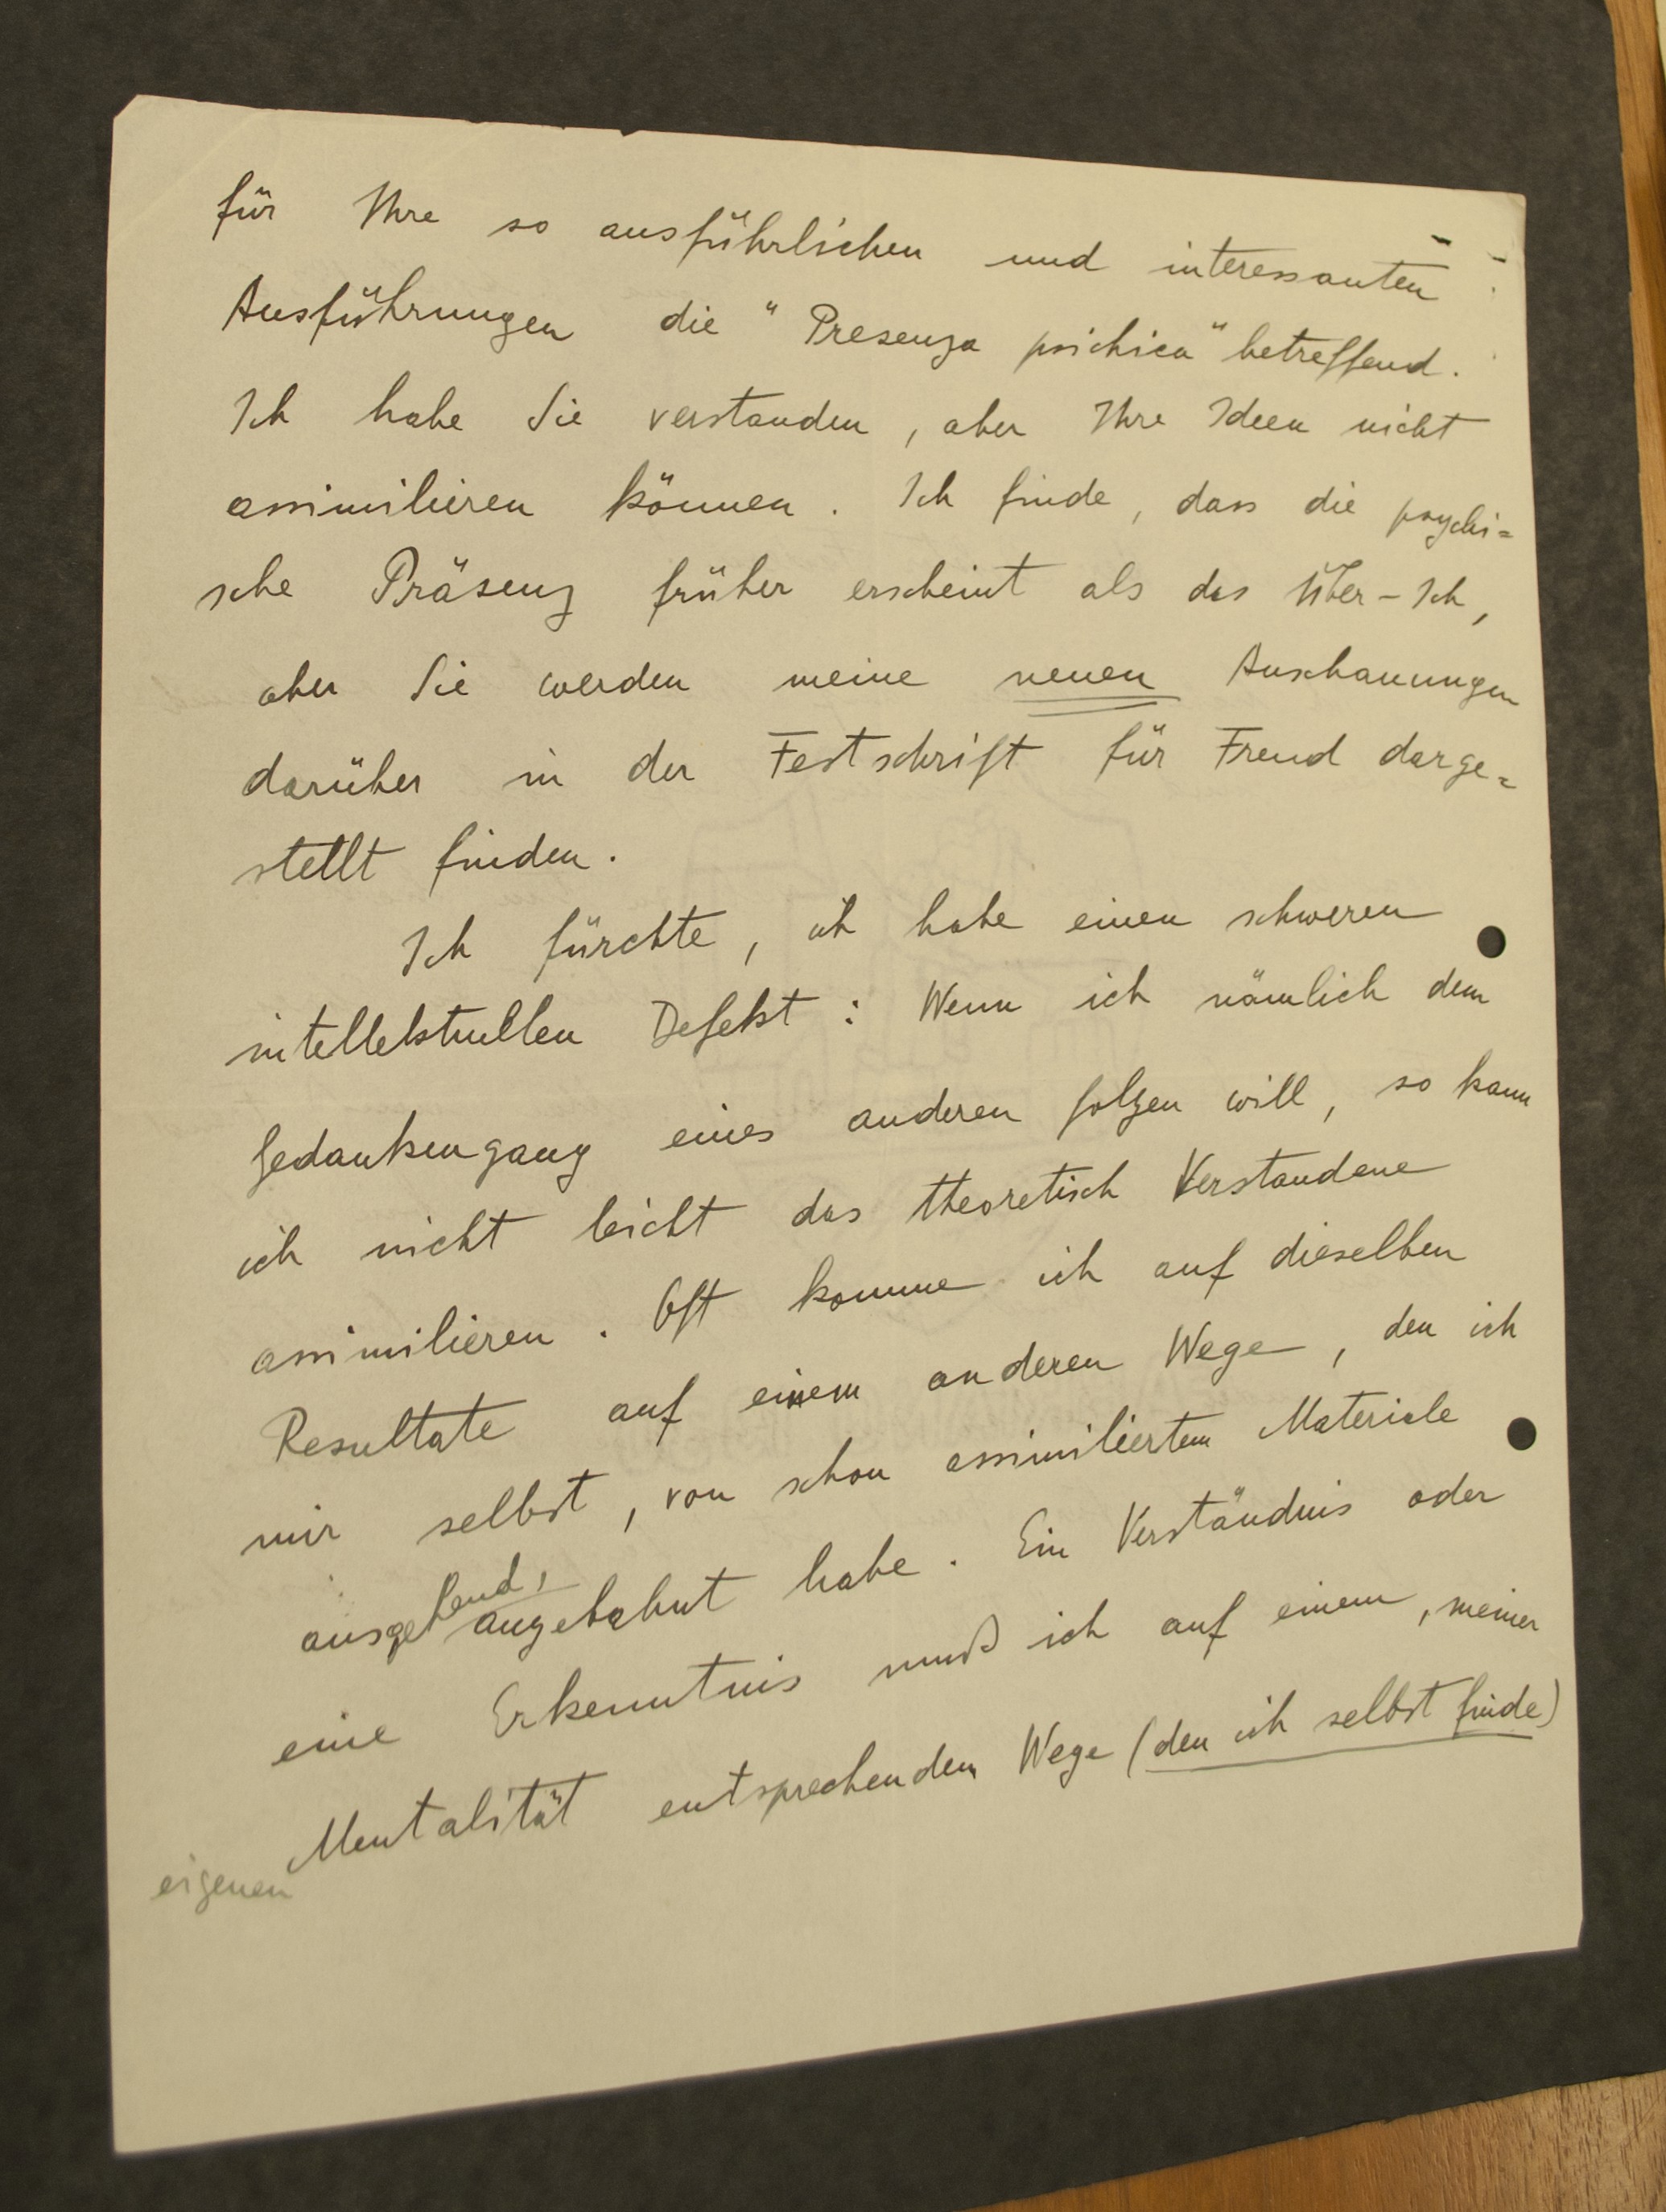 für Ihre so ausführlichen und interessanten
Ausführungen die "Presenza psichica" betreffend.
Ich habe Sie verstanden, aber Ihre Ideen nicht
assimilieren können. Ich finde, dass die psychi=
sche Präsenz früher erscheint als das Über-Ich,
aber Sie werden meine neuen Anschauungen
darüber in der Festschrift für Freud darge=
stellt finden.
Ich fürchte, ich habe einen schweren
intellektuellen Defekt: Wenn ich nämlich dem
Gedankengang eines anderen folgen will, so kann
ich nicht leicht das theoretisch Verstandene
assimilieren. Oft komme ich auf dieselben
Resultate auf einem anderen Wege, den ich
mir selbst, von schon assimiliertem Materiale
ausgehend, angebahnt habe. Ein Verständnis oder
eine Erkenntnis muß ich auf einem, meiner
Mentalität entsprechenden Wege (den ich selbst finde)
eigenen